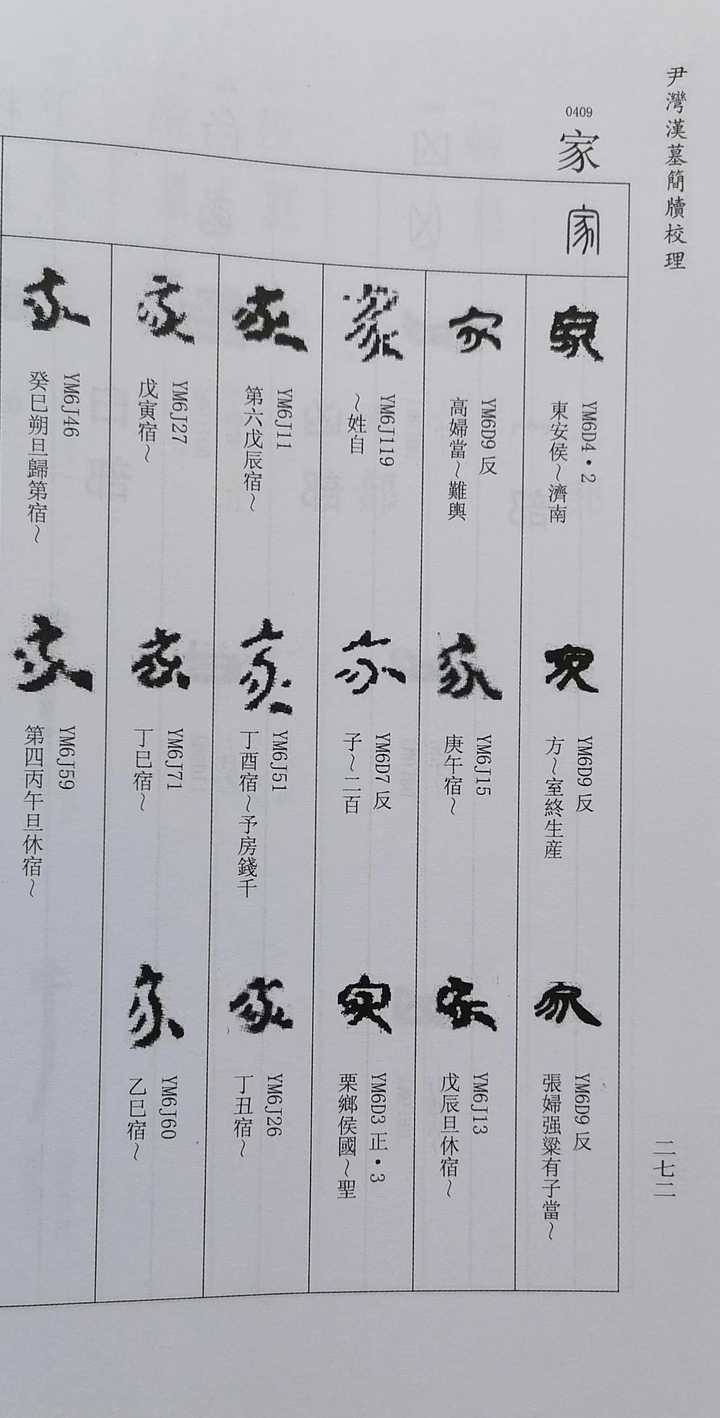 尹灣漢墓簡牘校理
二七二
0409
家
家
YM6D4·2
東安侯~濟南
YM6D9反
方~室終生産
YM6D9反
張婦强粱有子當~
YM6D9反
高婦當~難輿
YM6J15
庚午宿~
YM6J13
戊辰旦休宿~
YM6J119
~姓自
YM6D7反
子~二百
YM6D3正·3
栗鄉侯國~聖
YM6J11
第六戊辰宿~
YM6J51
丁酉宿~予房錢千
YM6J26
丁丑宿~
YM6J27
戊寅宿~
YM6J71
丁巳宿~
YM6J60
乙巳宿~
YM6J46
癸巳朔旦歸第宿~
YM6J59
第四丙午旦休宿~